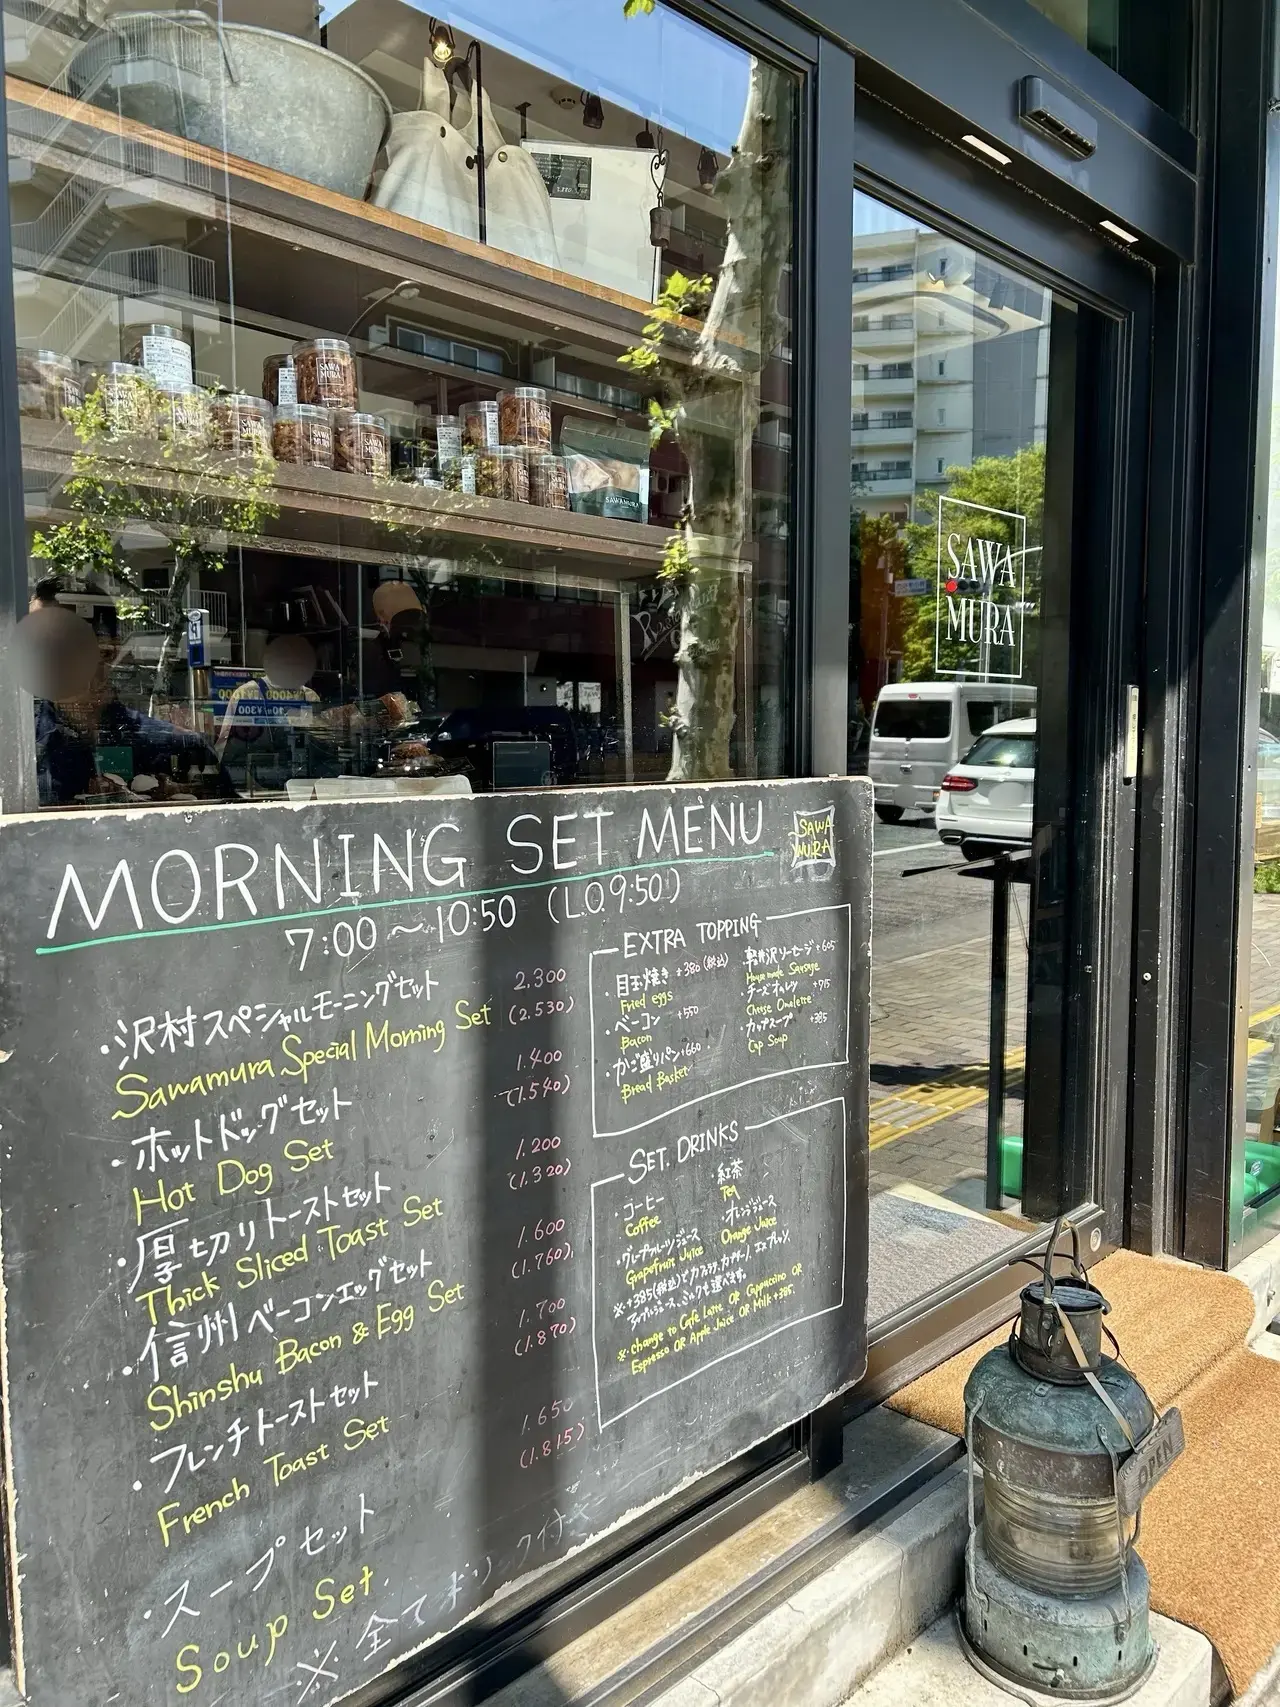 SAWA
MURA
SAWA
MURA
SAWAMURA
MORNING SET MENU
SAWA
MURA
7:00〜10:50 (L.O 9:50)
・沢村スペシャルモーニングセット 2.300
Sawamura Special Morning Set (2.530)
・ホットドッグセット 1.400
Hot Dog Set (1.540)
・厚切りトーストセット 1.200
Thick Sliced Toast Set (1.320)
・信州ベーコンエッグセット 1.600
Shinshu Bacon & Egg Set (1.760)
・フレンチトーストセット 1.700
French Toast Set (1.870)
・スープセット 1.650
Soup Set (1.815)
※全てドリンク付き
EXTRA TOPPING
・目玉焼き +380(税込)
Fried eggs
・ベーコン +550
Bacon
・かご盛りパン +660
Bread Basket
・軽井沢ソーセージ +605
House made Sausage
・チーズオムレツ +715
Cheese Omelette
・カップスープ +385
Cup Soup
SET DRINKS
・コーヒー
Coffee
・紅茶
Tea
・グレープフルーツジュース
Grapefruit Juice
・オレンジジュース
Orange Juice
※+385(税込)でカフェラテ、カプチーノ、エスプレッソ、
アップルジュース、ミルクも選べます。
※change to Cafe latte OR Cappuccino OR
Espresso OR Apple Juice OR Milk +385.
OPEN